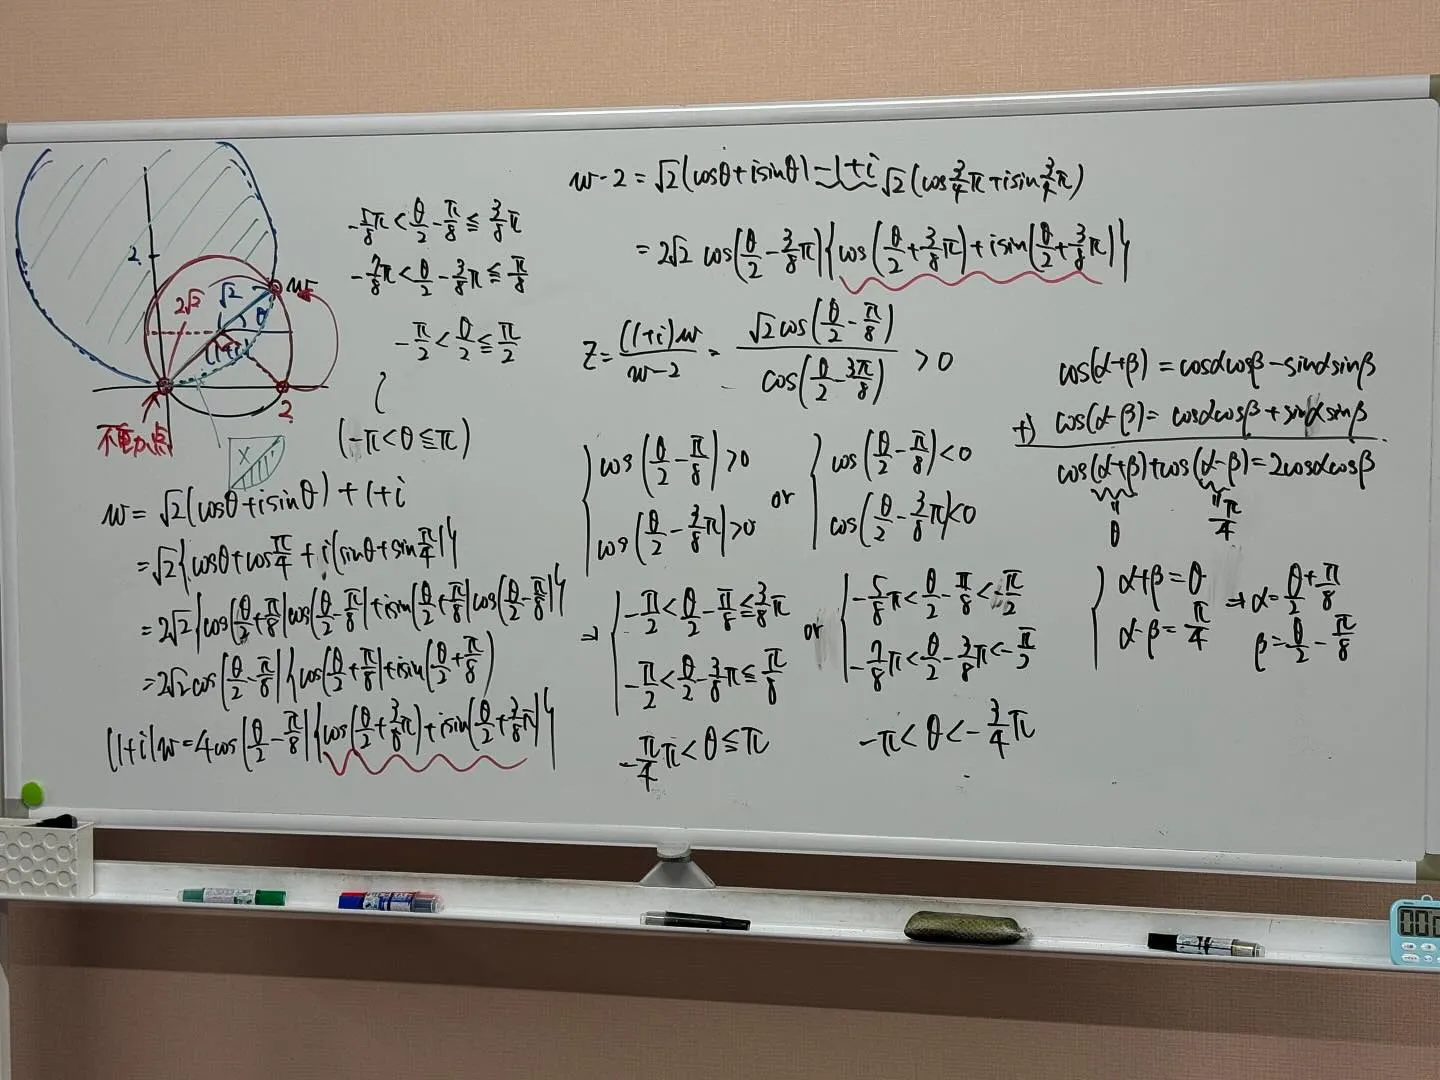 2
2√2
√2
θ
w
(1+i)
2
不連加点
X
-5/8π < θ/2 - π/8 ≦ 3/8π
-7/8π < θ/2 - 3/8π ≦ π/8
-π/2 < θ/2 ≦ π/2
(-π < θ ≦ π)
w = √2(cosθ+isinθ) + 1+i
= √2{cosθ+cosπ/4 + i(sinθ+sinπ/4)}
= 2√2{cos(θ/2+π/8)cos(θ/2-π/8)+isin(θ/2+π/8)cos(θ/2-π/8)}
= 2√2cos(θ/2-π/8){cos(θ/2+π/8)+isin(θ/2+π/8)
(1+i)w = 4cos(θ/2-π/8){cos(θ/2+3/8π)+isin(θ/2+3/8π)}
w-2 = √2(cosθ+isinθ) -1+i √2(cos3/4π+isin3/4π)
= 2√2 cos(θ/2-3/8π){cos(θ/2+3/8π)+isin(θ/2+3/8π)}
z = (1+i)w/(w-2) = √2cos(θ/2-π/8)/cos(θ/2-3π/8) > 0
{cos(θ/2-π/8)>0 or {cos(θ/2-π/8)<0
cos(θ/2-3/8π)>0 cos(θ/2-3/8π)<0
⇒ {-π/2<θ/2-π/8≦3/8π or {-5/8π<θ/2-π/8<-π/2
-π/2<θ/2-3/8π≦π/8 -7/8π<θ/2-3/8π<-π/2
-π/4π<θ≦π -π<θ<-3/4π
cos(α+β) = cosαcosβ-sinαsinβ
+) cos(α-β) = cosαcosβ+sinαsinβ
cos(α+β)+cos(α-β)=2cosαcosβ
" "
θ π/4
{α+β=θ ⇒ α=θ/2+π/8
α-β=π/4 β=θ/2-π/8